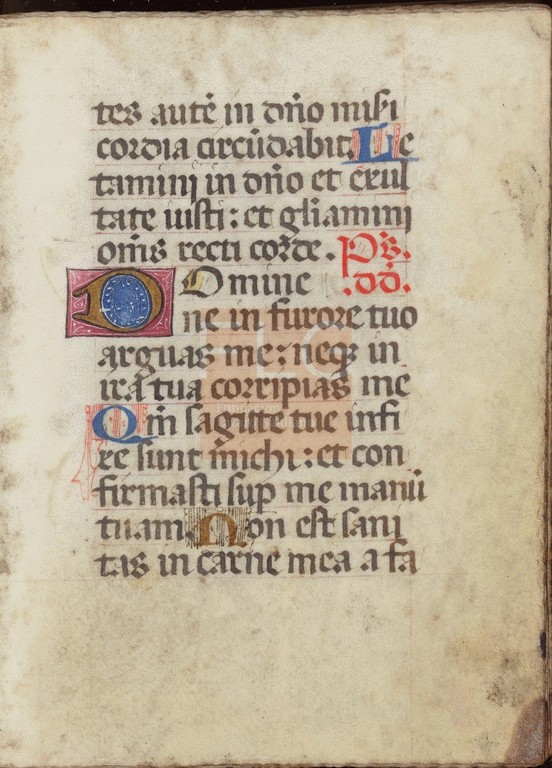 tes autē in dño misi
cordia circūdabit. Le
tamini in dño et exul
tate iusti: et gl̃iamini
om̃s recti corde. Ps.
Domine .dd.
ne in furore tuo
arguas me: neqꝫ in
ira tua corripias me
Qm̃ sagitte tue infi
xe sunt michi: et con
firmasti sup me manū
tuam. Non est sani
tas in carne mea a fa